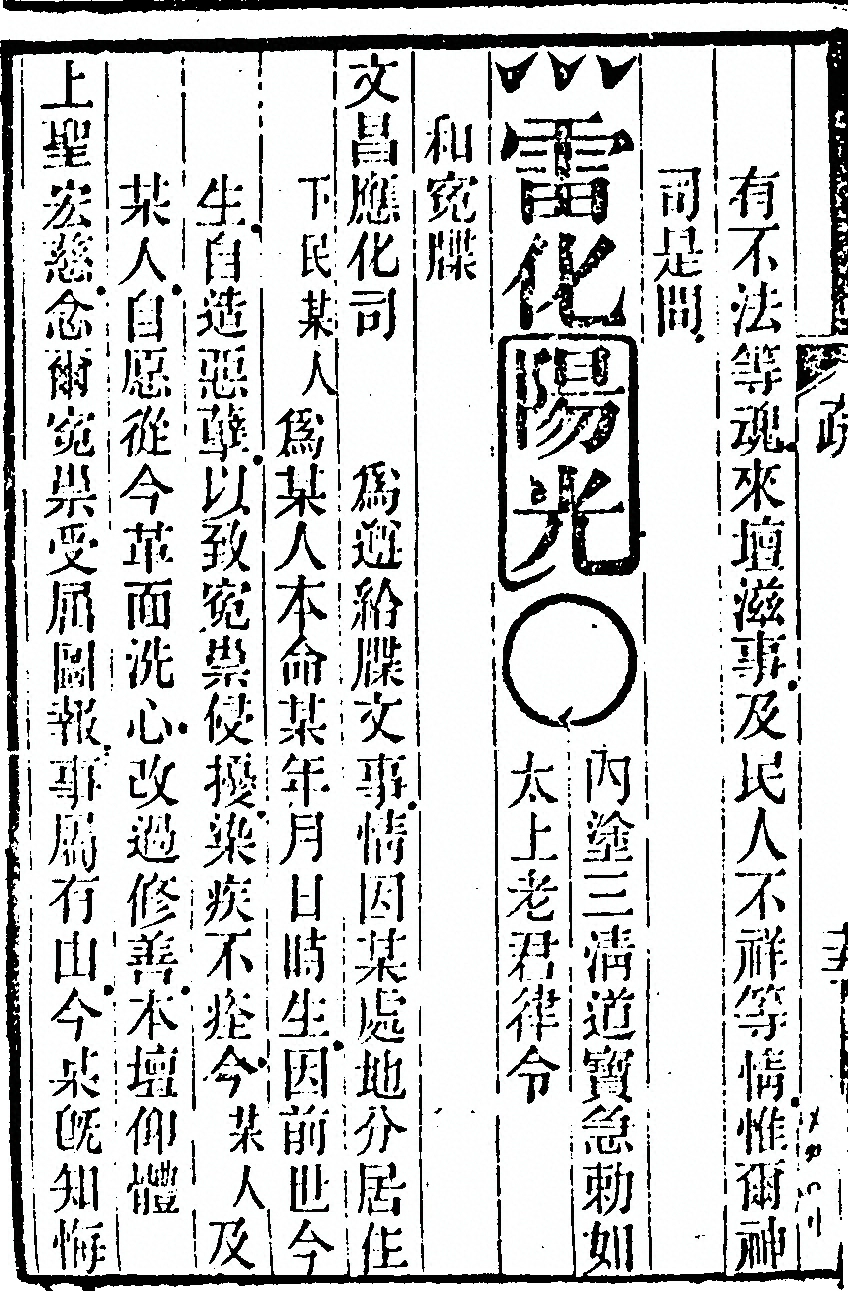 有不法等魂來壇滋事及民人不祥等情惟爾神
司是問
雷化陽光
內塗三清道寶急勅如
太上老君律令
和寃牒
文昌應化司　為遯給牒文事情因某處地分居住
下民某人為某人本命某年月日時生因前世今
生自造惡孽以致寃祟侵擾染疾不痊今某人及
某人自愿從今革面洗心改過修善本壇仰體
上聖宏慈念爾寃祟受屈圖報事屬有由今某既知悔